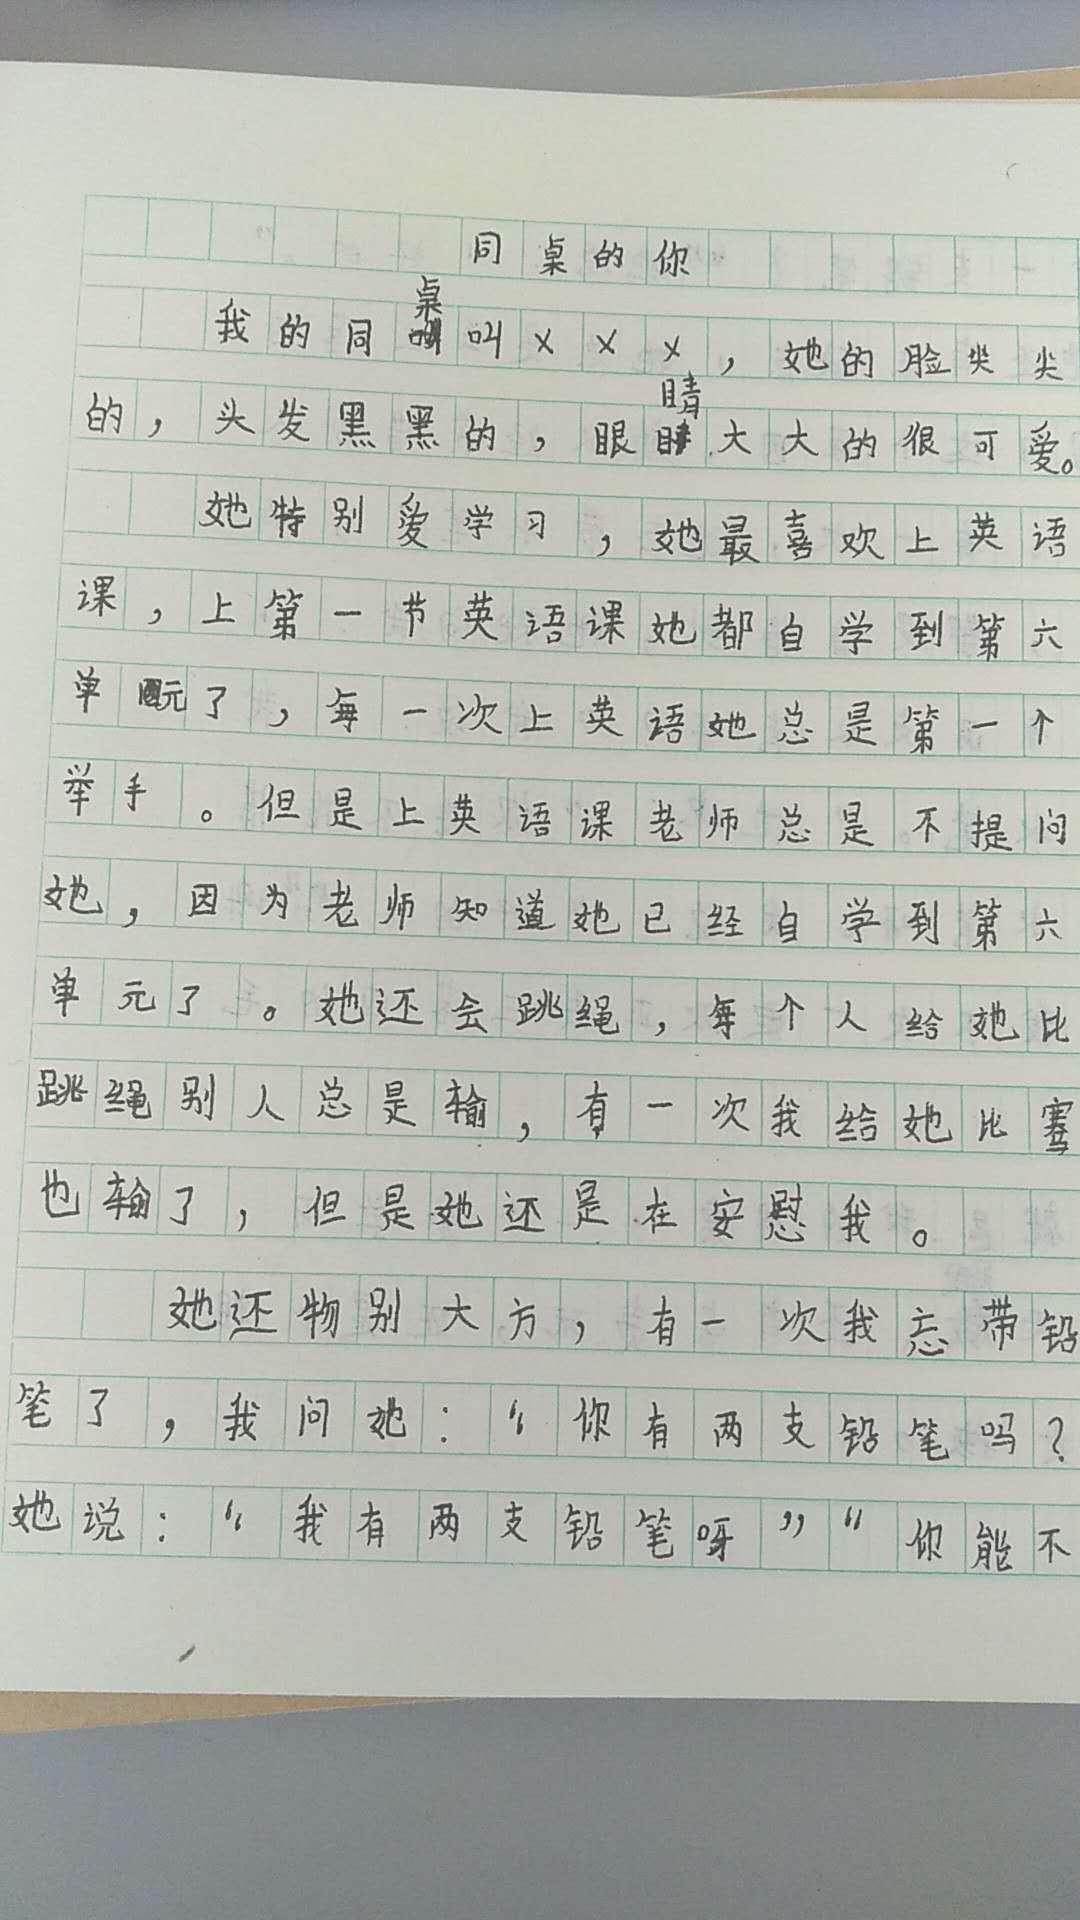 同桌的你
我的同桌叫×××，她的脸尖尖
的，头发黑黑的，眼睛大大的很可爱。
她特别爱学习，她最喜欢上英语
课，上第一节英语课她都自学到第六
单元了，每一次上英语她总是第一个
举手。但是上英语课老师总是不提问
她，因为老师知道她已经自学到第六
单元了。她还会跳绳，每个人给她比
跳绳别人总是输，有一次我给她比赛
也输了，但是她还是在安慰我。
她还物别大方，有一次我忘带铅
笔了，我问她：“你有两支铅笔吗？
她说：“我有两支铅笔呀”“你能不